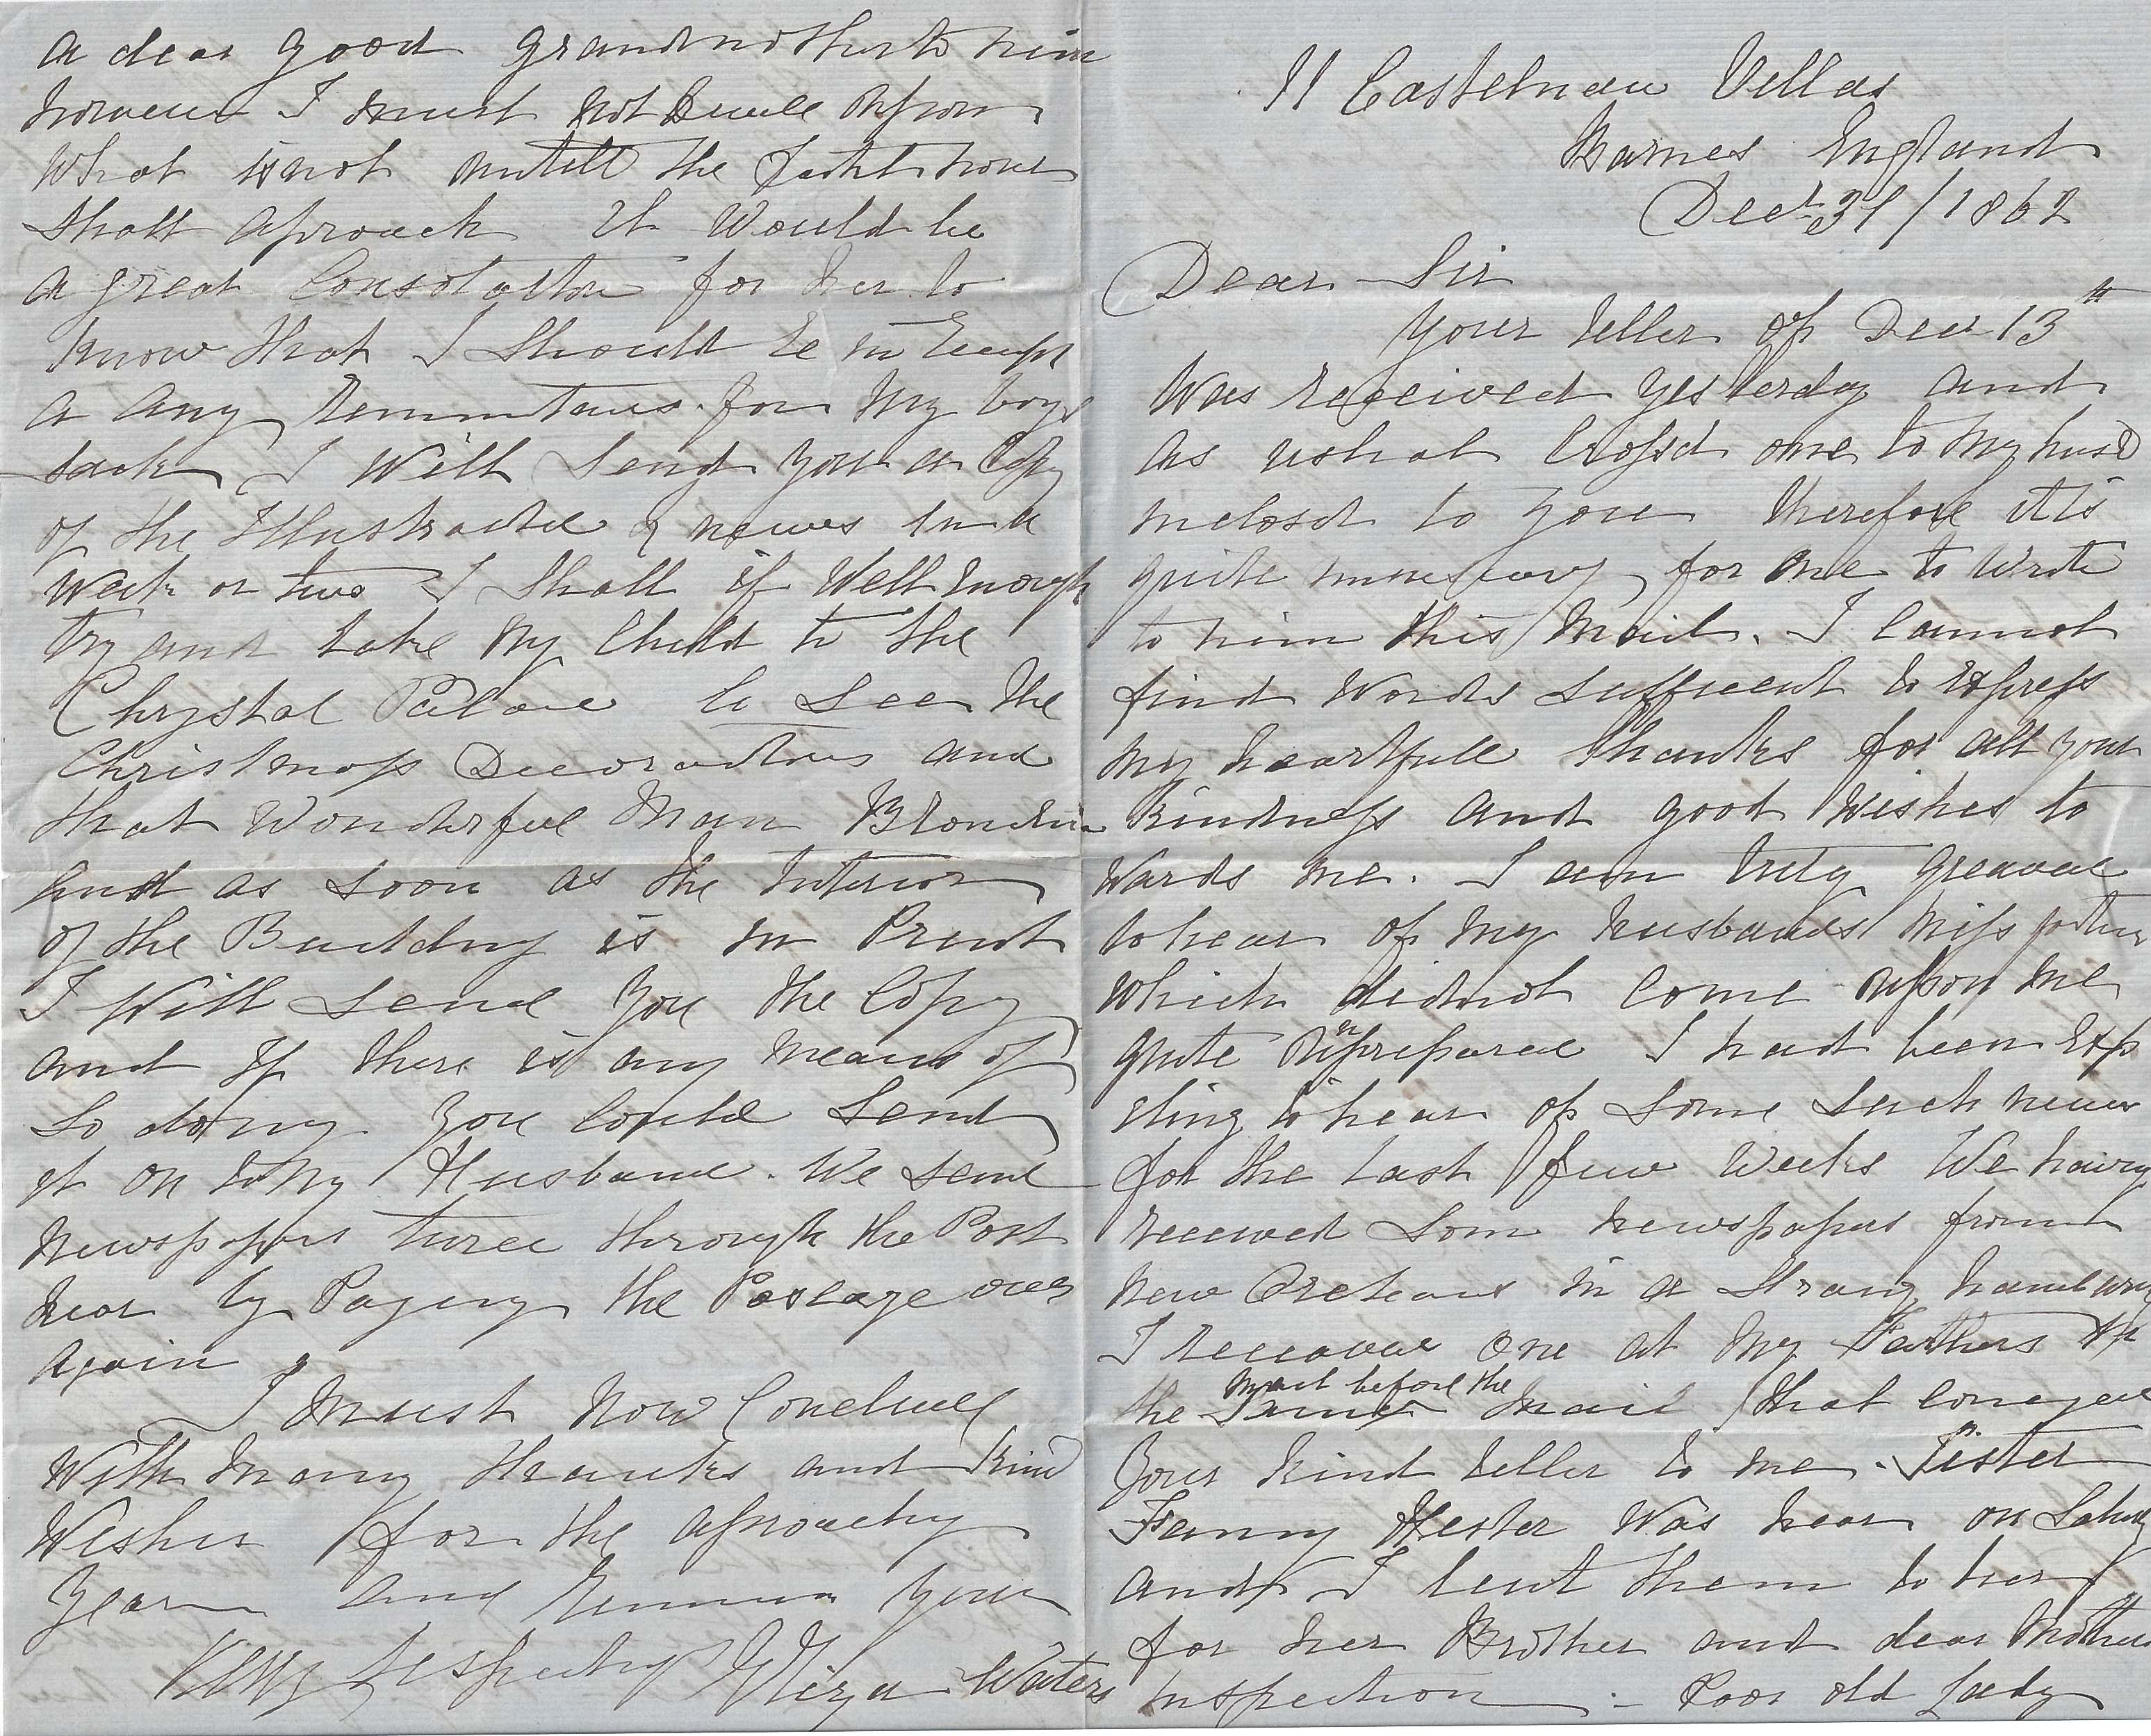 11 Castelnau Villas
Barnes England
Dect 31/1862
Dear Sir
your letter of Decr 13th
was received yesterday and
as usual Crossd one to my husd
inclosd to you therefore it is
quite for me to write
to him this Mail. I Cannot
find words sufficent to Express
my heartfull thanks for all your
kindness and good wishes to
wards me. I am truly greaved
to hear of my husbands miss fortune
which did not come upon me
quite unprepared I had been Exp
cting to hear of some such news
for the last few weeks We having
received som newspapers from
New Orleans in a Strang handwri
I receaved one at my Fathers
the mail before the mail that convayed
your kind letter to me. Sister
Fanny Hester was hear on Saturdy
and I lent them to her
for her Brother and dear Mothers
inspection - Poor old Lady
a dear good grandmother to him
however I must not Dwell upon
what is not untill the hour
shall aproach it would be
a great Consolation for her to
know that I should be in receipt
a any remmitance for my boys
sack I will send you a Copy
of the Illustrated newes in a
week or two I shall if well Enough
try and take my Child to the
Chrystal Palace to see the
Christmass Decorations and
that wonderful man Blondin
and as soon as the Interior
of the Building is in Print
I will send you the Copy
and if there is any means of
so doing you could send
it on to my Husband. We send
newspapers through the Post
hear by Paying the Postage over
again
I must now Conclude
with many thanks and kind
wishes for the aproachg
year and remain your
very respectfuly Eliza Waters